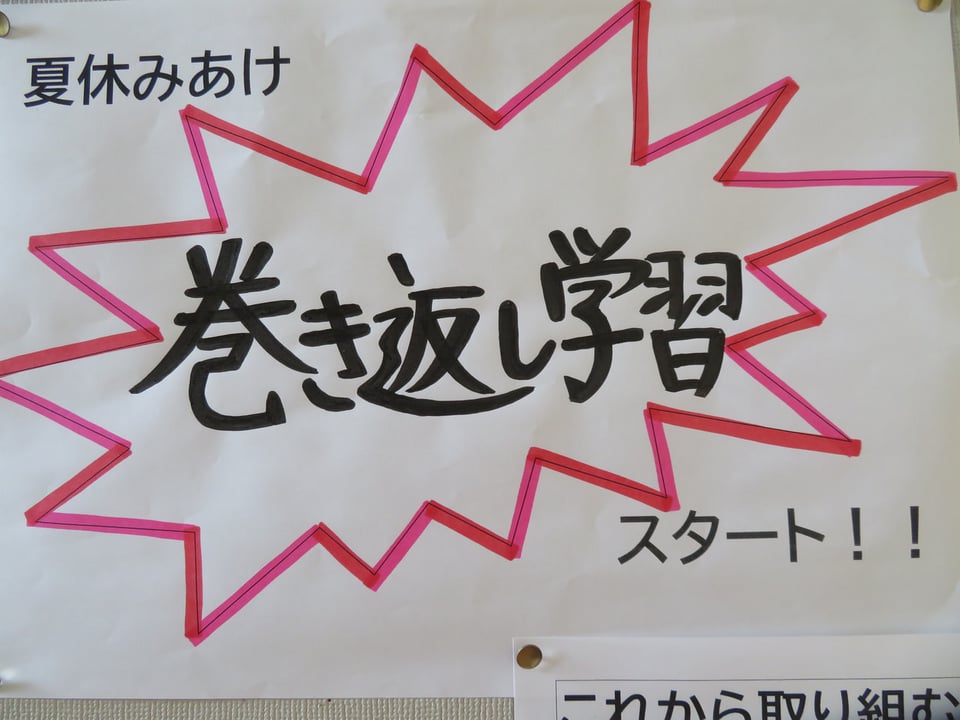 夏休みあけ
巻き返し学習
スタート！！
これから取り組む